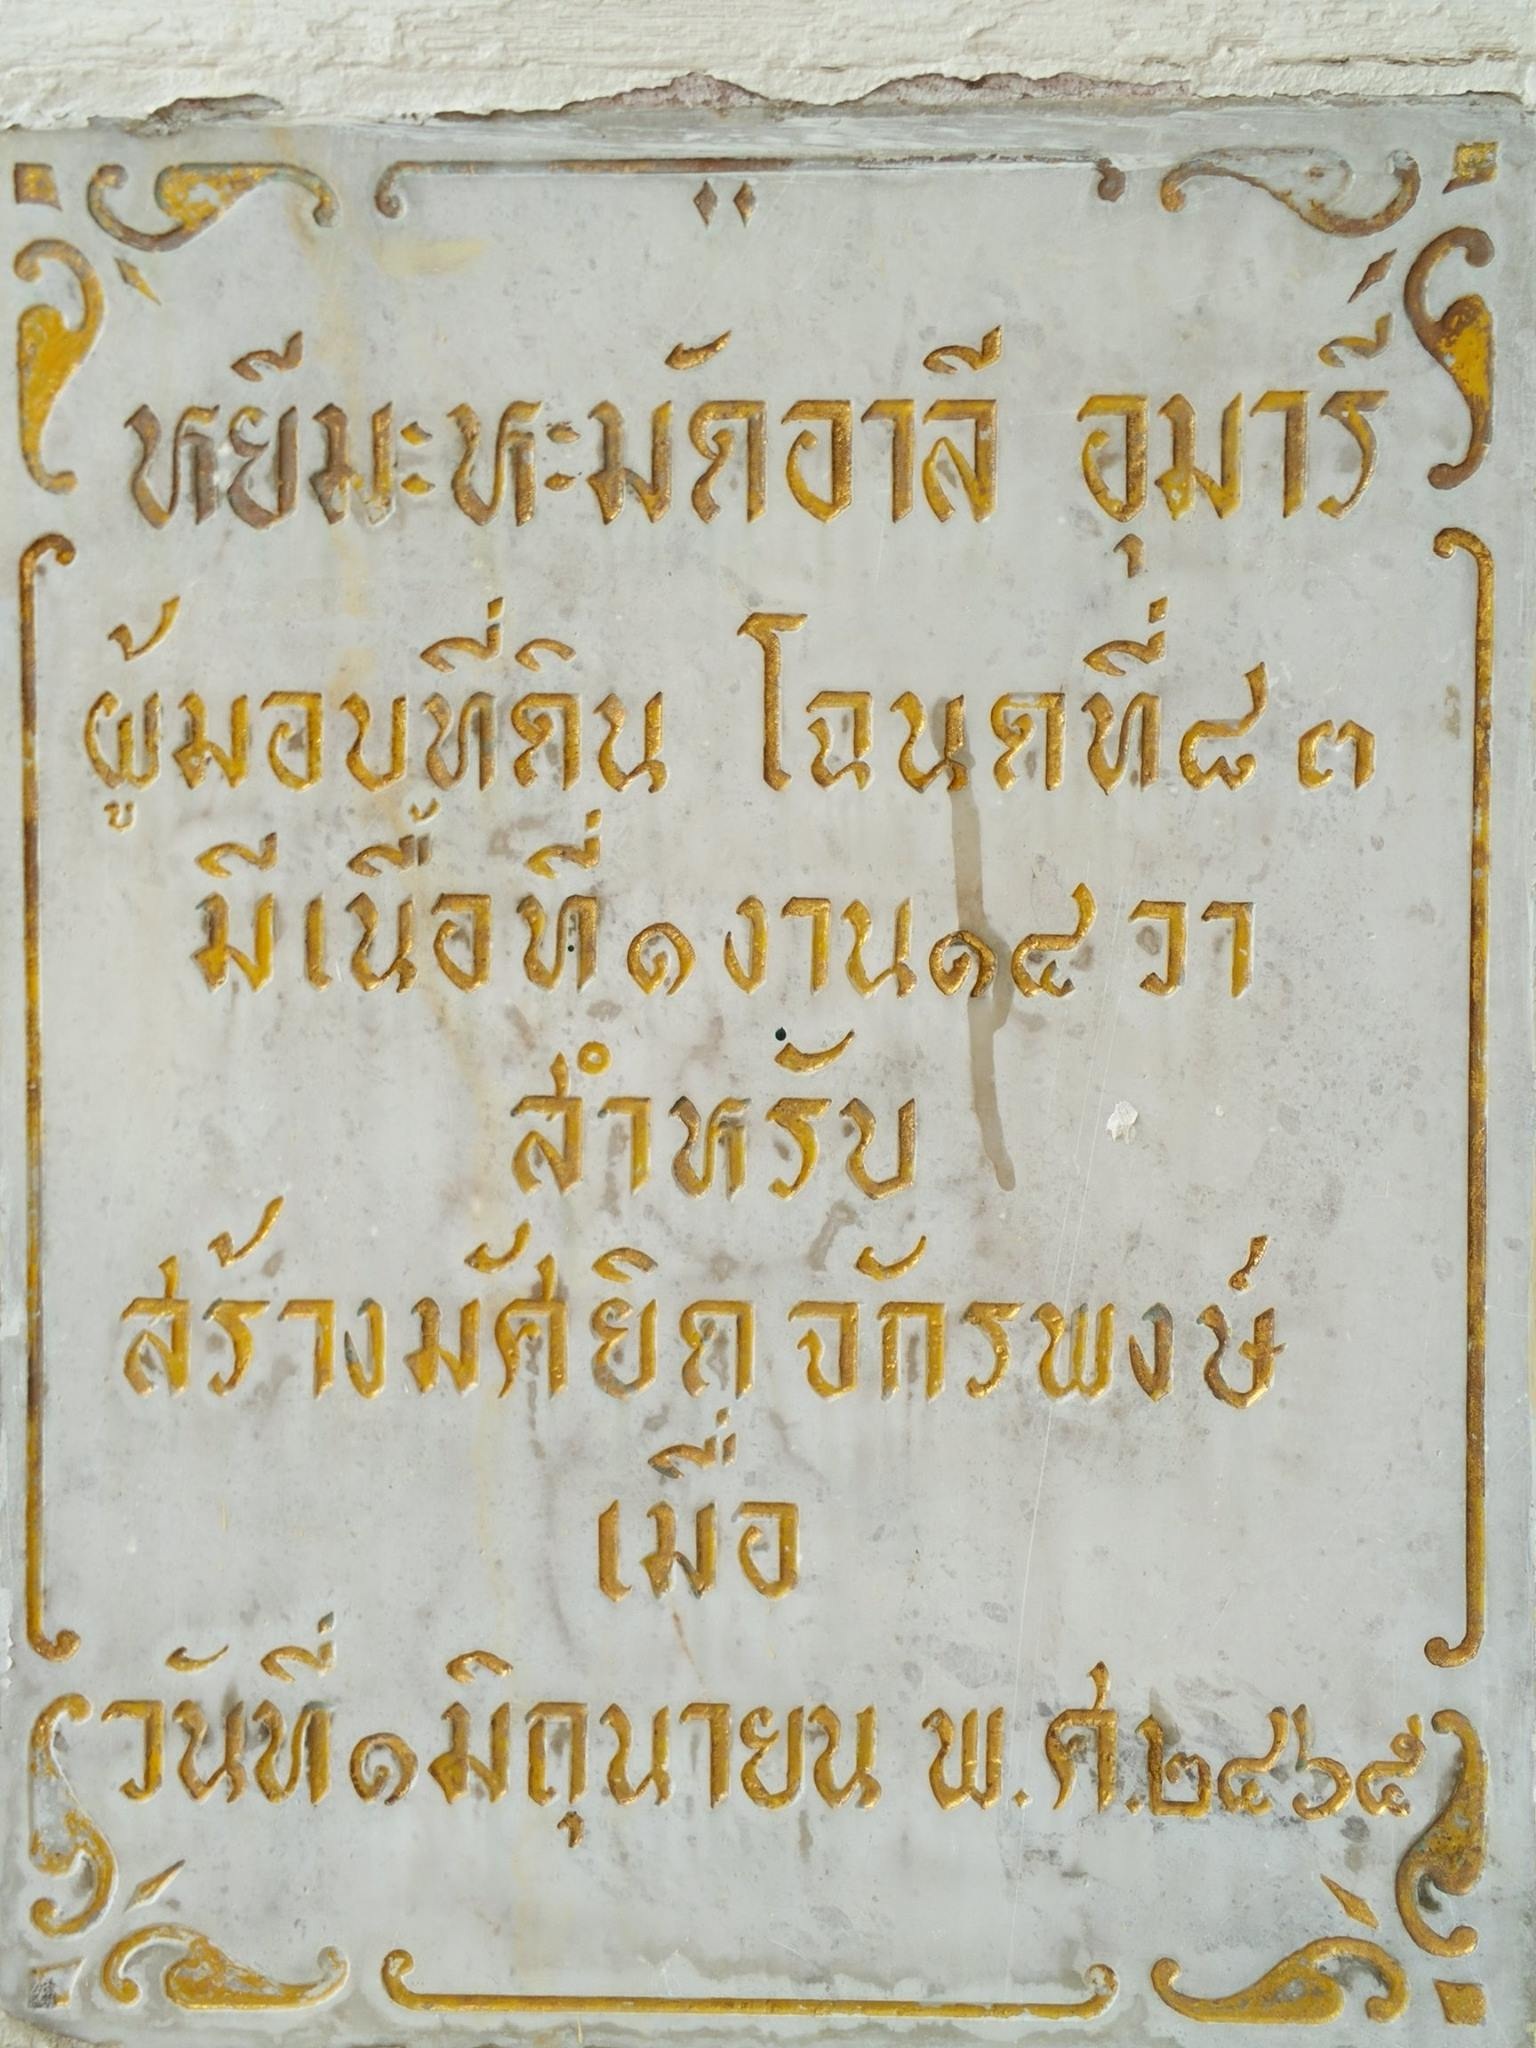 หยีมะหะมัดอาลี อุมารี
ผู้มอบที่ดิน โฉนดที่๘๓
มีเนื้อที่๑งาน๑๔วา
สำหรับ
สร้างมัศยิดจักรพงษ์
เมื่อ
วันที่๑มิถุนายน พ.ศ.๒๔๖๕